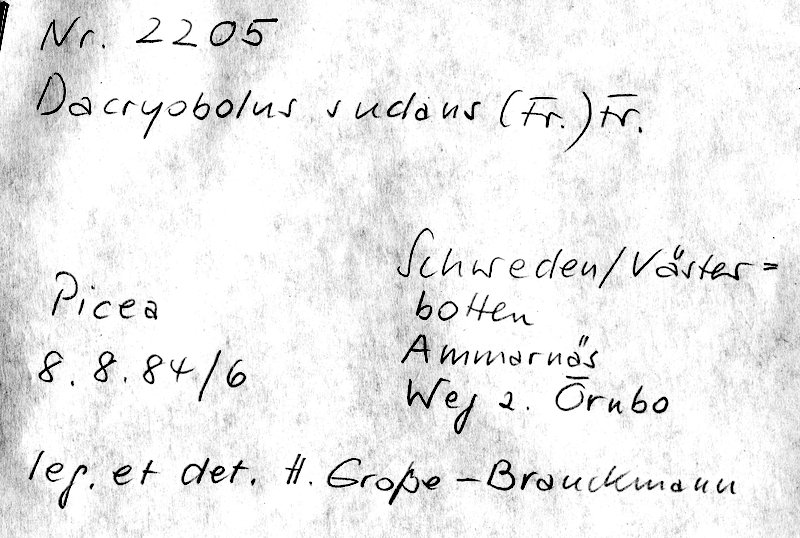 Nr. 2205
Dacryobolus sudans (Fr.) Fr.
Schweden/Väster=
botten
Ammarnäs
Weg z. Örnbo
Picea
8.8.84/6
leg. et det. H. Große-Brauckmann